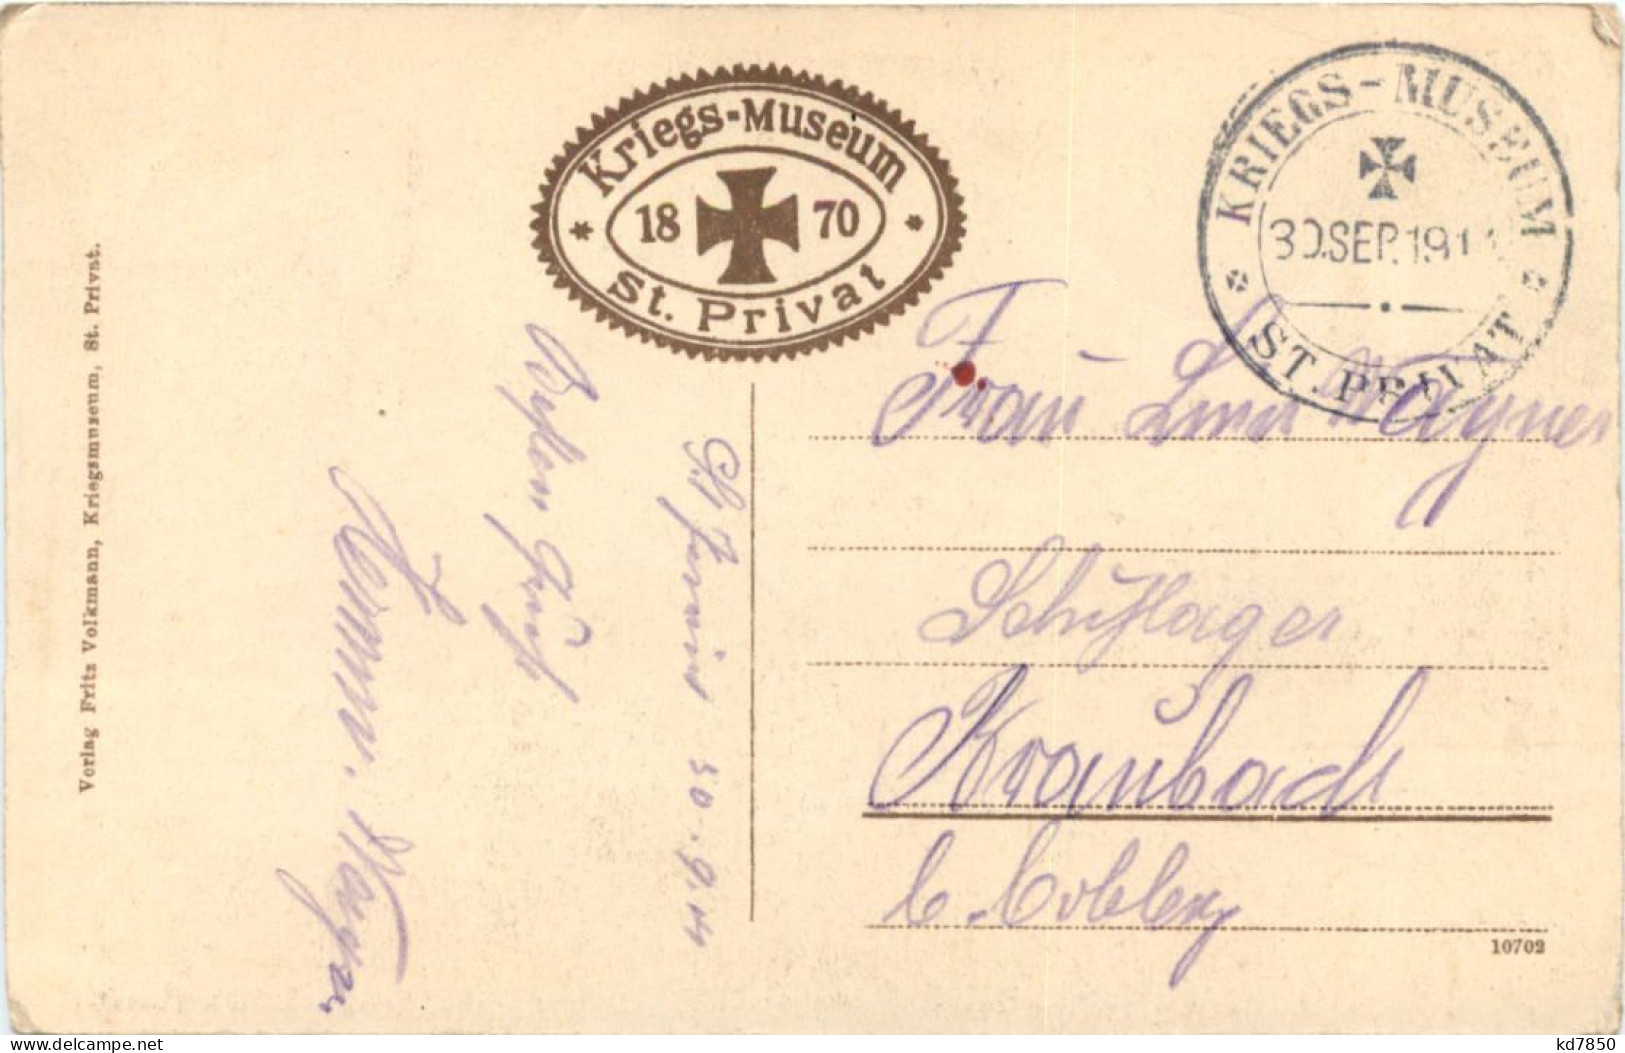 Kriegs-Museum
18 70
St. Privat
KRIEGS-MUSEUM
30.SEP.191
ST. PRIVAT
Verlag Fritz Volkmann, Kriegsmuseum, St. Privat.
St. Privat 30.9.14
Besten Gruß
Wagner
Frau Wagner
Kraubach
b.
10702
delcampe.net
kd7850